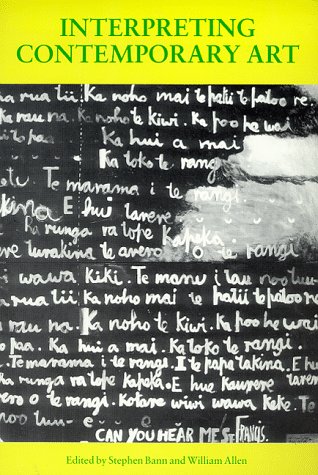 INTERPRETING
CONTEMPORARY ART
a rua tii. Ka noho mai te patii te patoo re.
rau na. Ka noho te kiwi. Ka poo he wai
to paa. Ka hui a mai
Ka toko te rangi
Te marama i te rangi.
kina E hui
ka runga ra tope Kapeka
ere turakina te avero o te rangi
i wawa Kiki. Te manu i tau noo
a rua tii. Ka noho mai te patii te patoo ro
rau na. Ka noho te kiwi. Ka poo he wai
o paa. Ka hui a mai. Ka toko te rangi.
Te marama i te rangi. I te papa takina. E hu
ka runga ra tope kapeka. E hue
avero o te rangi. Kotare wiwi wawa keke. Te
CAN YOU HEAR ME ST FRANCIS.
Edited by Stephen Bann and William Allen